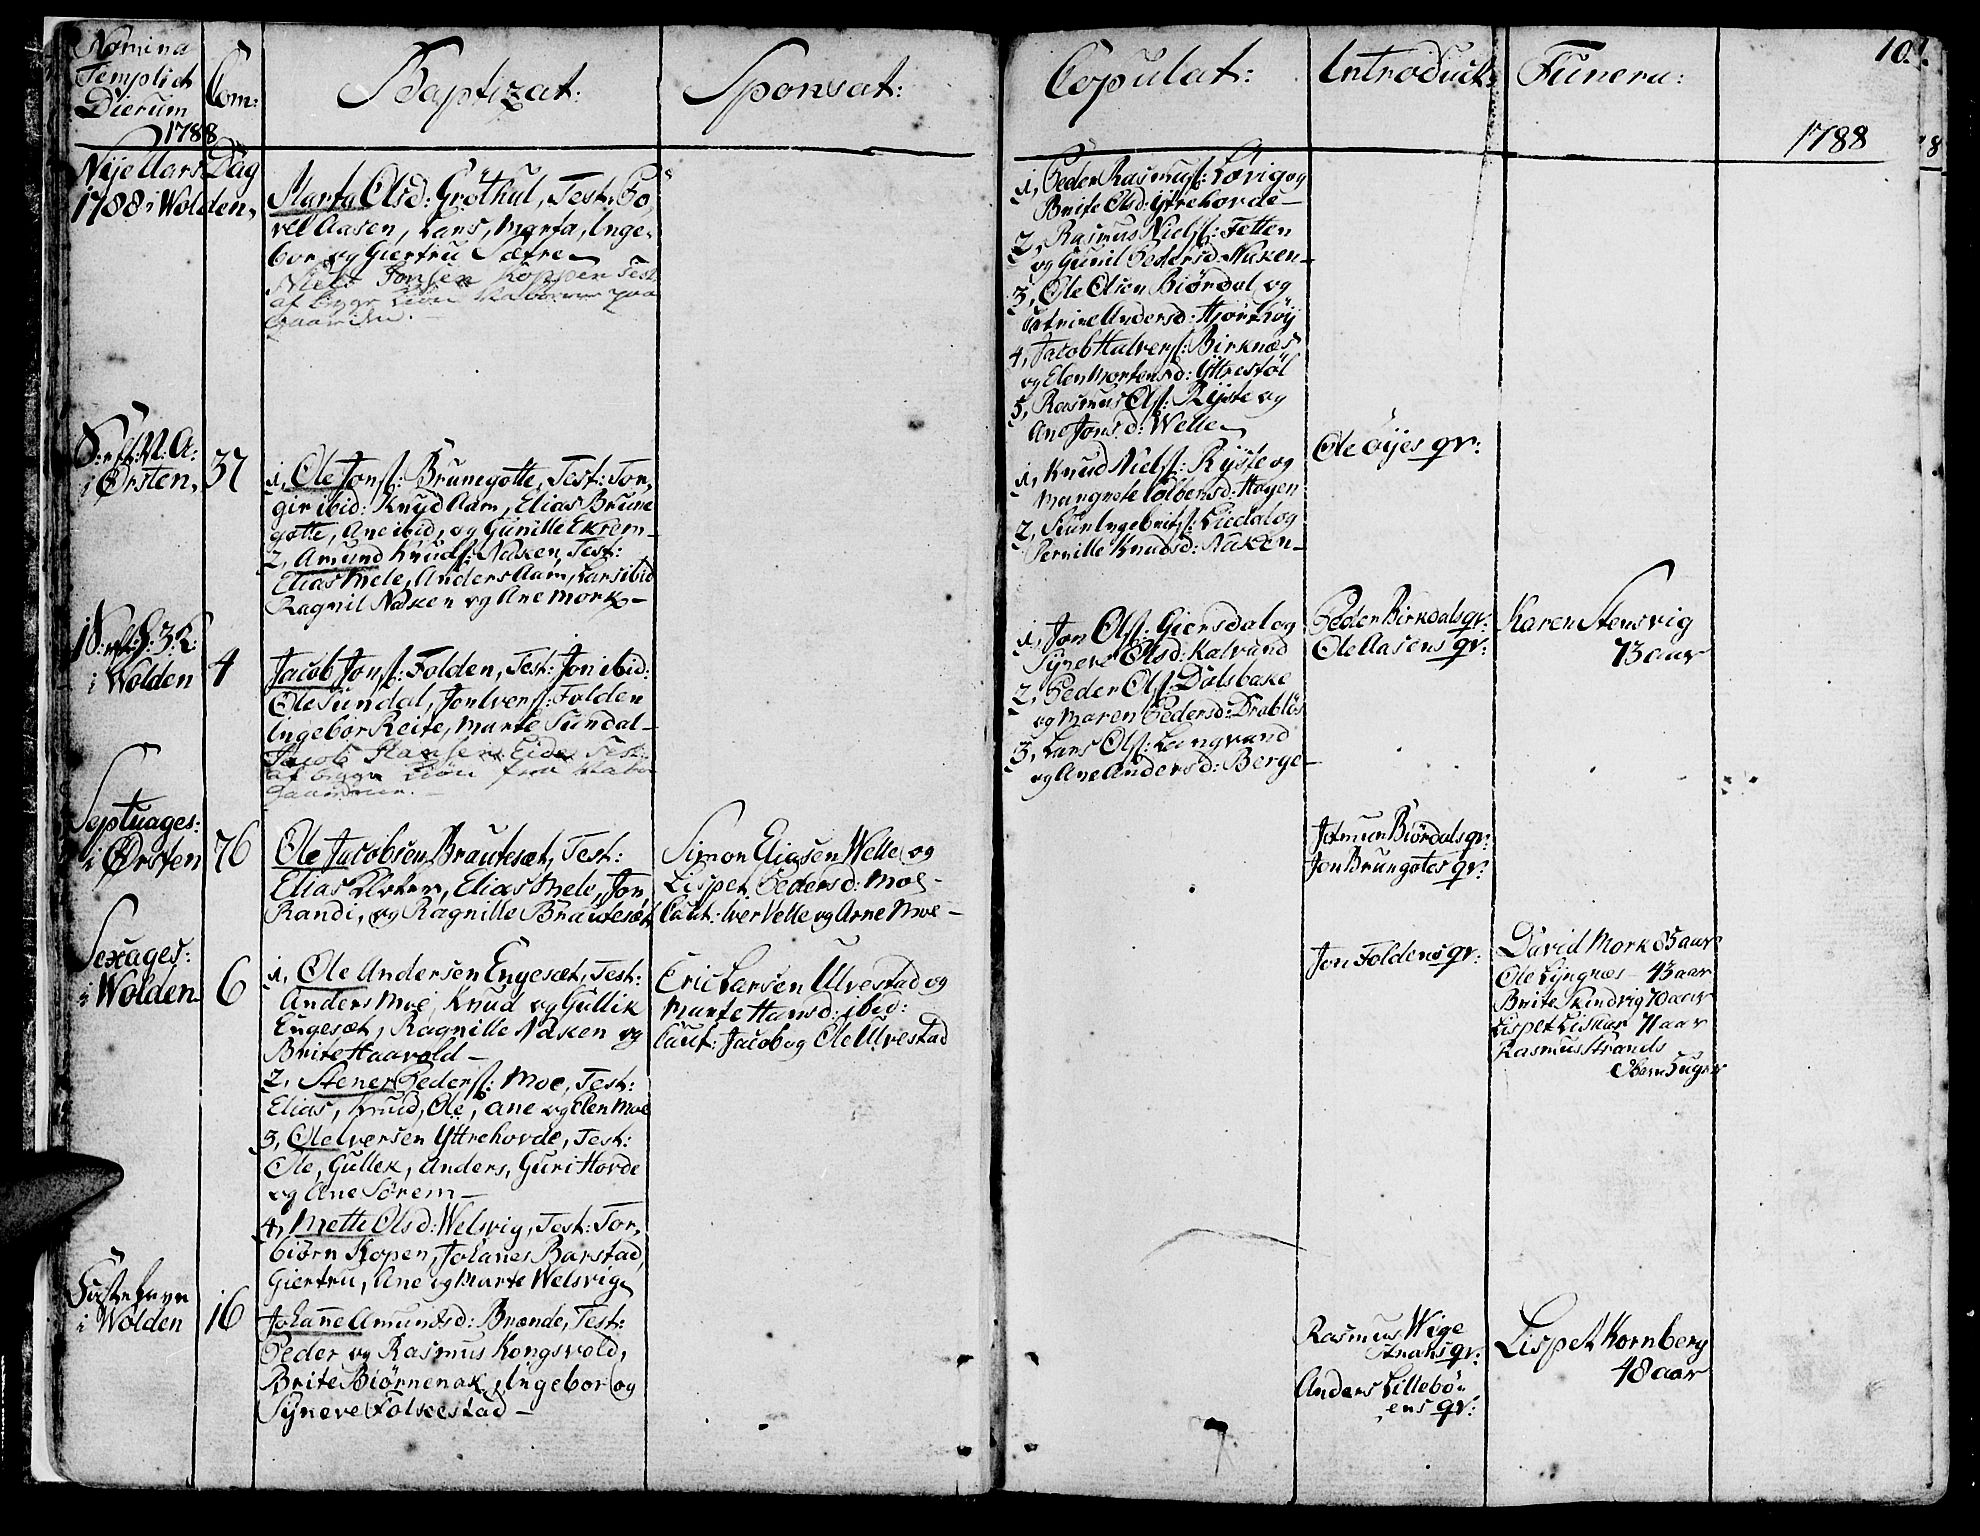 Nomina
Templi et
Dierum
1788
Com:
Baptizat:
Sponsat:
Copulat:
Introduct:
Funera:
10.
1788
Nije Aars Dag
1788 i Wolden,
Marta Olsd: Gröthul, Test: Bo,,
rel Aasen, Lars, Marta, Inge,,
bor og Giertru Sætre
Niels Jonsen Koppen Test
af
gaarden.
1, Peder Rasmusſ: Løvig og
Brite Olsd: Yttrehovde
2, Rasmus Nielsſ: Fetten
og Gunil Pedersd: Naken
3, Ole Olsen Biørdal og
Catrine Andersd: Hjørthöÿ
4, Jacob Halversſ: Birknæs
og Elen Mortensd: Yttrestöl
5, Rasmus Olsſ: Rÿste og
Ane Jonsd: Welle
S: eft: N: A:
i Ørsten,
37
1, Ole Jonsſ: Brunegotte, Test: Tor,
gir ibid: Knud Aam, Elias Brune
gotte, Ane ibid, og Gunille Ekrem
2, Amund Knudsſ: Naken, Test:
Elias Mele, Anders Aam, Lars ibid
Ragnil Naken og Ane Mork
1, Knud Nielsſ: Rÿste og
Margrete Colbensd: Hogen
2, Steen Ingebritsſ: Liedal og
Pernille Knudsd: Naken
Ole öÿes qv:
S: eft: h: 3: K:
i Wolden
4
Jacob Jonsſ: Folden, Test: Jon ibid:
Ole Sundal, Jon Iversſ: Folden
Ingebor Reite, Marte Sundal
Jacob Hansen Eide Test:
af fra
1, Jon Olsſ: Giersdal og
Sÿneve Olsd: Kalvund
2, Peder Olsſ Dalsbake
og Maren Pedersd: Drabløs
3, Lars Olsſ: Langvand
og Ane Andersd: Berge
Peder Birkdals qv:
Ole Aasens qv:
Karen Stensvig
73 aar
Septuages:
i Ørsten
76
Ole Jacobsen Brautesæt, Test:
Elias Aloter, Elias Mele, Jon
Randi, og Ragnille Brautesæt
Simon Eliasen Welle og
Lispet Pedersd: Moe
Caut: Iver Velle og Arne Moe
Jetmun Biørdals qv:
Jon Brungotes qv:
Sexages:
i Wolden
6
1, Ole Andersen Engesæt, Test:
Anders Moe, Knud og Gullik
Engesæt, Ragnille Naken og
Brite Haavold
2, Stener Pedersſ: Moe, Test:
Elias, Knud, Ole, Ane og Elen Moe
3, Ole Iversen Yttrehovde, Test:
Ole, Gullek, Anders, Guri Hovde
og Ane Sörem
4, Mette Olsd: Welsvig, Test: Tor,
biørn Kopen, Johanes Barstad,
Giertru, Ane og Marte Welsvig
Eric Larsen Ulvestad og
Marte Hansd: ibid:
Caut: Jacob og Ole Ulvestad
Jon Foldens qv:
David Mork 85 aar
Ole Lÿngnes 43 aar
Brite Kindvig 70 aar
Lispet Liskar 71 aar
Rasmus Strands
barn 5 uger
Fastelavn
i Wolden
16
Johanne Amundsd: Brænde, Test:
Peder og Rasmus Kongsvold,
Brite Biørnenak, Ingebor og
Sÿneve Folkestad
Rasmus Wige
strans qv:
Anders Lillebø,,
ens qv:
Lispet Kornberg
48 aar